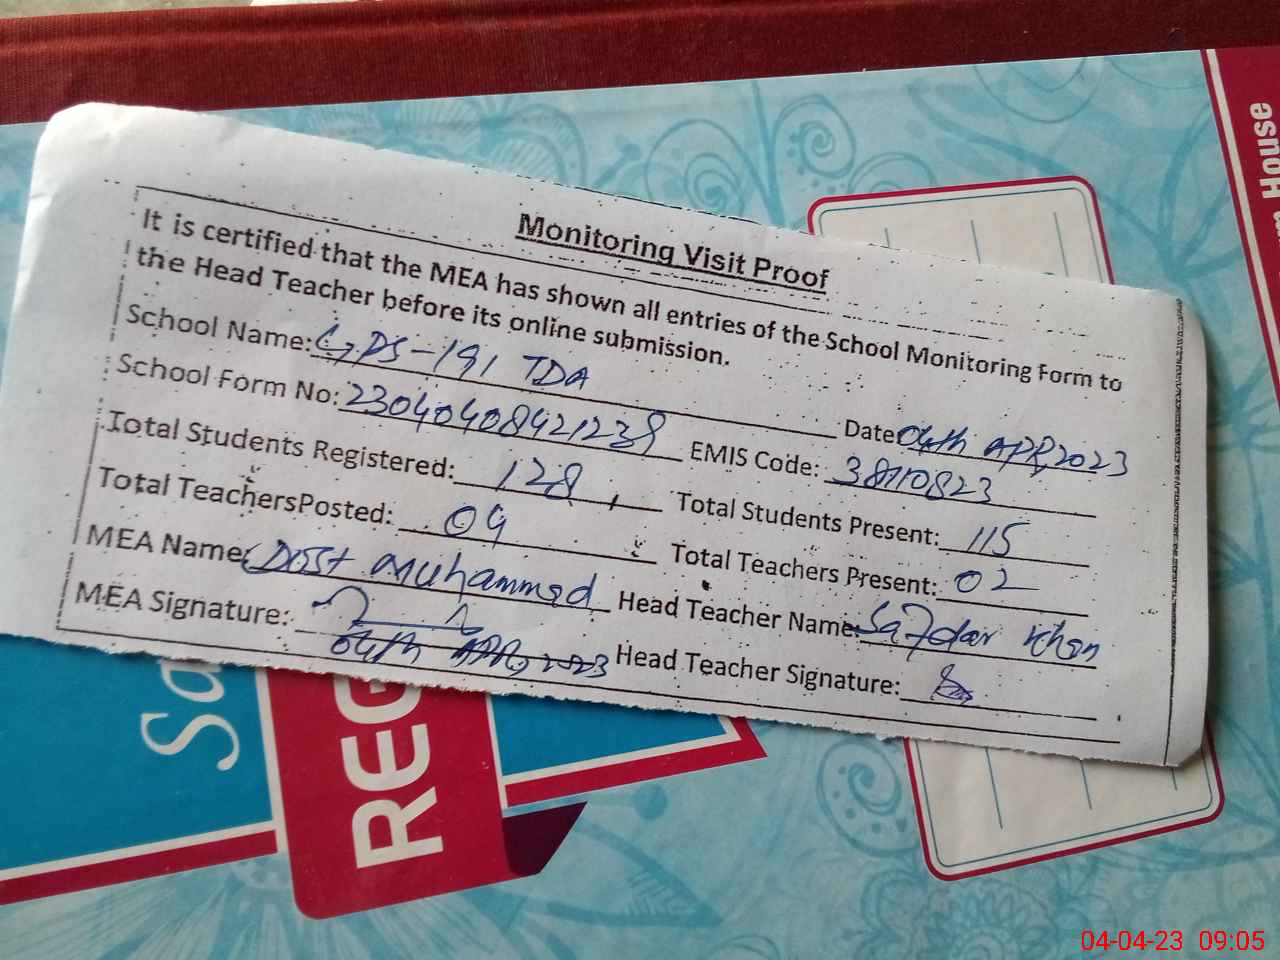 Monitoring Visit Proof
It is certified that the MEA has shown all entries of the School Monitoring Form to
the Head Teacher before its online submission.
School Name: GPS-191 TDA Date 04th APR, 2023
School Form No: 23040408421238 EMIS Code: 38110823
Total Students Registered: 128, Total Students Present: 115
Total TeachersPosted: 04 Total Teachers Present: 02
MEA Name: Dost Muhammad Head Teacher Name: Safdar Khan
MEA Signature: 04th APR, 2023 Head Teacher Signature:
House
Sa
REG
04-04-23 09:05